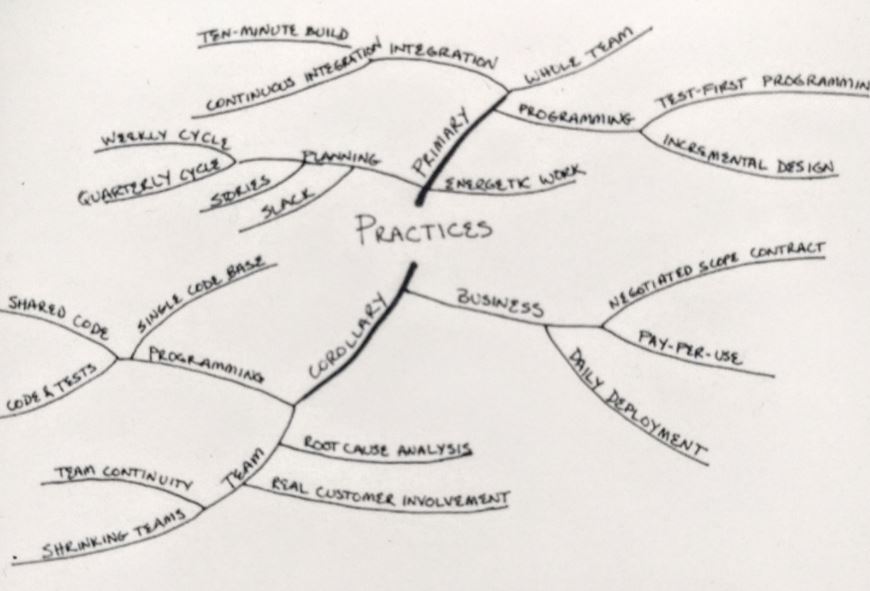 PRACTICES
PRIMARY
INTEGRATION
TEN-MINUTE BUILD
CONTINUOUS INTEGRATION
WHOLE TEAM
PROGRAMMING
TEST-FIRST PROGRAMMIN
INCREMENTAL DESIGN
ENERGETIC WORK
PLANNING
WEEKLY CYCLE
QUARTERLY CYCLE
STORIES
SLACK
COROLLARY
BUSINESS
NEGOTIATED SCOPE CONTRACT
PAY-PER-USE
DAILY DEPLOYMENT
PROGRAMMING
SINGLE CODE BASE
SHARED CODE
CODE & TESTS
TEAM
ROOT CAUSE ANALYSIS
REAL CUSTOMER INVOLVEMENT
TEAM CONTINUITY
SHRINKING TEAMS